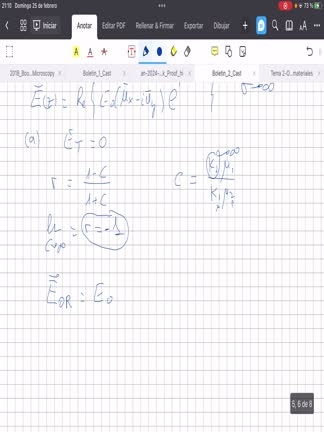 21:10 Domingo 25 de febrero 73 %
Iniciar Anotar Editar PDF Rellenar & Firmar Exportar Dibujar
2018_Boo...Microscopy Boletin_1_Cast an-2024-...x_Proof_hi Boletin_2_Cast Tema 2-O...materiales
E(z) = Re { E₀(μ̂x - iμ̂y) e } σ→∞
(a) E_T = 0
r = (1-C)/(1+C) C =
lim C→∞ = r = -1
E_OR = E₀
5, 6 de 8